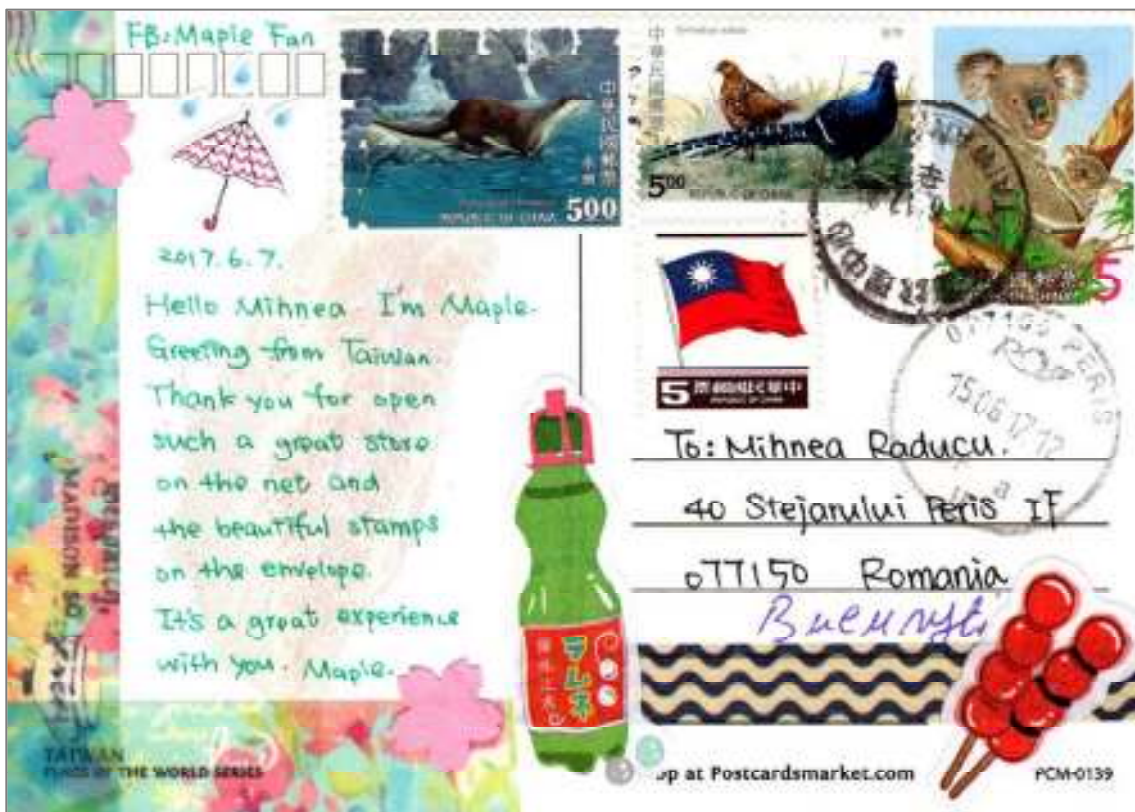 FB: Maple Fan
中華民國郵票
水獺
REPUBLIC OF CHINA 500
中華民國郵票
5.00 REPUBLIC OF CHINA
5
5 中華民國郵票
REPUBLIC OF CHINA
2017.6.7.
Hello Mihnea. I'm Maple.
Greeting from Taiwan.
Thank you for open
such a great store
on the net and
the beautiful stamps
on the envelope.
It's a great experience
with you. Maple.
PERIS
15.06.17.12
To: Mihnea Raducu.
40 Stejarului Peris IF
077150 Romania
ラムネ
MADISON SQ
TAIWAN
FLAGS OF THE WORLD SERIES
op at Postcardsmarket.com
PCM-0139